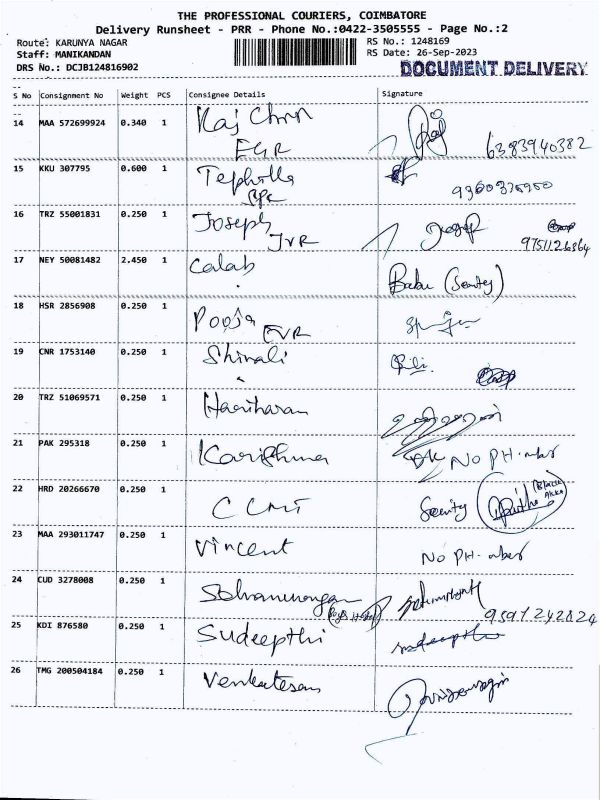 THE PROFESSIONAL COURIERS, COIMBATORE
Delivery Runsheet - PRR - Phone No.:0422-3505555 - Page No.:2
Route: KARUNYA NAGAR RS No.: 1248169
Staff: MANIKANDAN RS Date: 26-Sep-2023
DRS No.: DCJB124816902 DOCUMENT DELIVERY
S No Consignment No Weight PCS Consignee Details Signature
14 MAA 572699924 0.340 1 Raj
6383940382
15 KKU 307795 0.600 1 Tephilla
16 TRZ 55001831 0.250 1 Joseph Joseph
JVR
17 NEY 50081482 2.450 1 Calab Babu (Security)
18 HSR 2856908 0.250 1 Pooja
EVR
19 CNR 1753140 0.250 1 Shinali
20 TRZ 51069571 0.250 1 Hariharan
21 PAK 295318 0.250 1 Karishma NO PH. nber
22 HRD 20266670 0.250 1 Security
23 MAA 293011747 0.250 1 Vincent NO PH. nber
24 CUD 3278008 0.250 1
9591242824
25 KDI 876580 0.250 1 Sudeepthi sudeepthi
26 TMG 200504184 0.250 1 Venkatesan